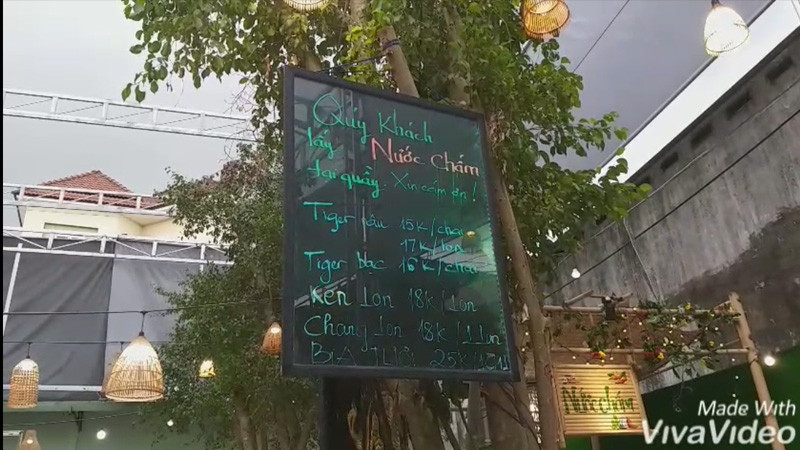 Quý Khách
lấy Nước Chấm
tại quầy. Xin cảm ơn!
Tiger nâu 15k/chai
17k/lon
Tiger bạc 16k/chai
Ken lon 18k/lon
Chang lon 18k/1 lon
BIA TƯƠI 25k/
Nước chấm
Made With
VivaVideo